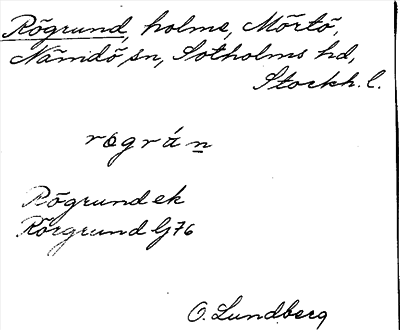 Rögrund, holme, Mörtö,
Nämdö sn, Sotholms hd,
Stockh. l.
rográn
Rögrund ek
Rörgrund Gj 76
O. Lundberg